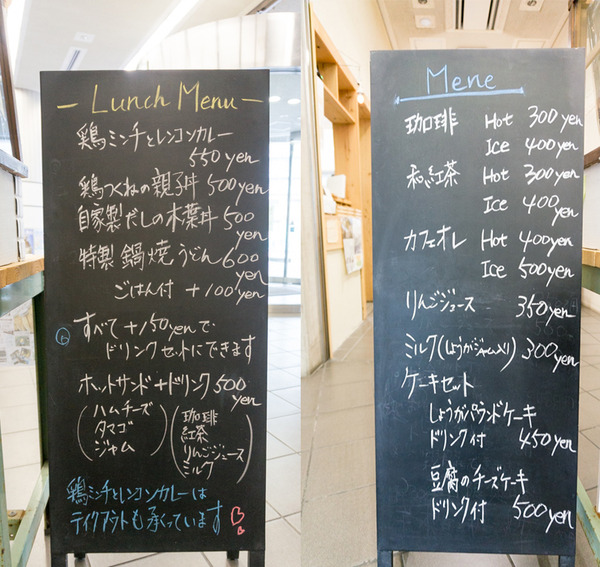 - Lunch Menu -
鶏ミンチとレンコンカレー
550 yen
鶏つくねの親子丼 500 yen
自家製だしの木葉丼 500 yen
特製 鍋焼うどん 600 yen
ごはん付 +100 yen
すべて +150 yen で
ドリンクセットにできます
ホットサンド + ドリンク 500 yen
(ハムチーズ
タマゴ
ジャム)
(珈琲
紅茶
りんごジュース
ミルク)
鶏ミンチとレンコンカレーは
テイクアウトも承っています
Mene
珈琲 Hot 300 yen
Ice 400 yen
和紅茶 Hot 300 yen
Ice 400 yen
カフェオレ Hot 400 yen
Ice 500 yen
りんごジュース 350 yen
ミルク(しょうがジャム入り) 300 yen
ケーキセット
しょうがパウンドケーキ
ドリンク付 450 yen
豆腐のチーズケーキ
ドリンク付 500 yen